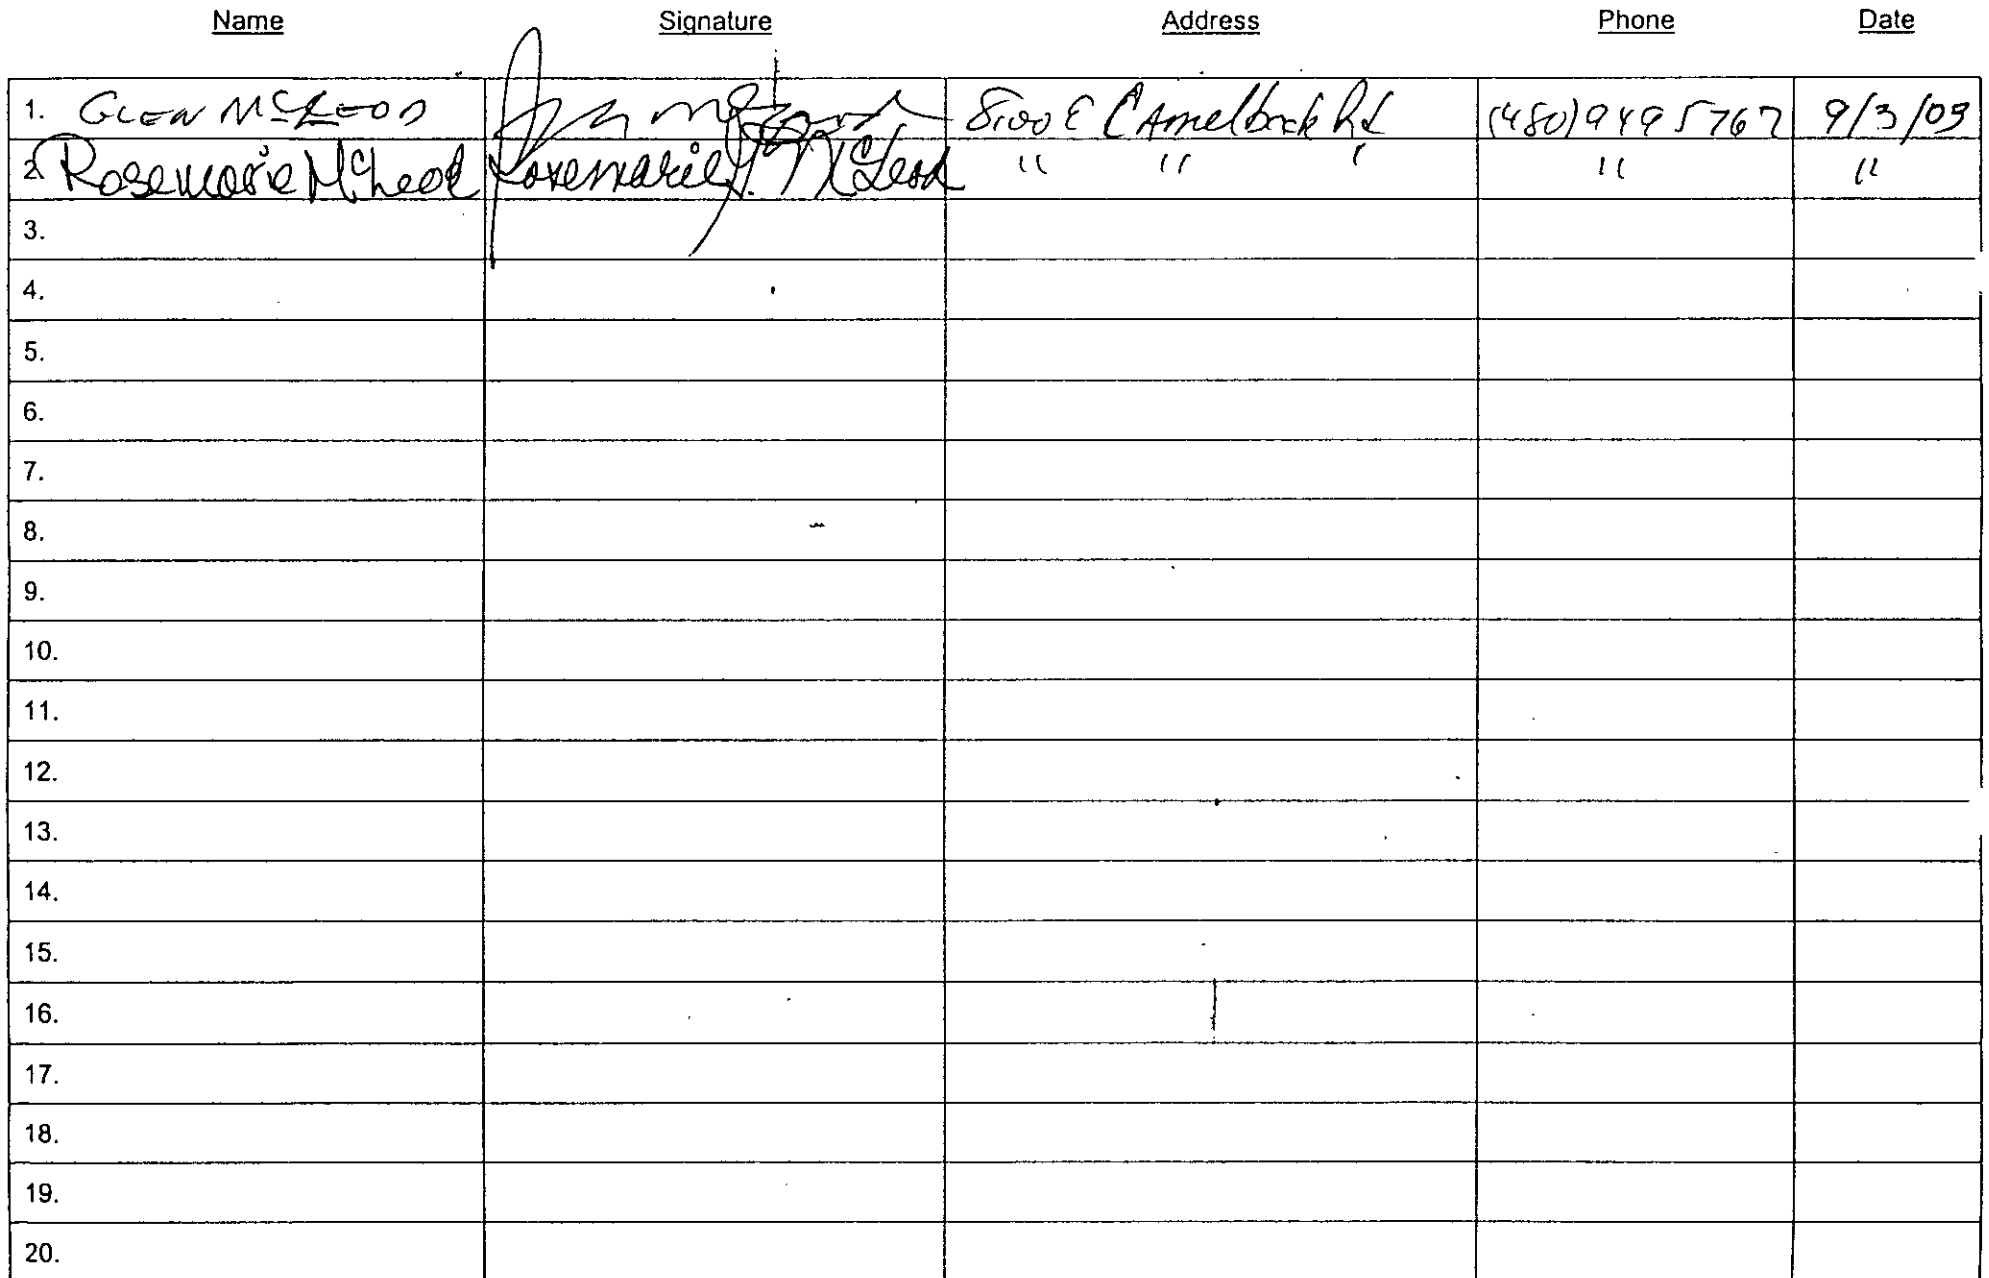 Name Signature Address Phone Date
1. GLEN McLEOD 8100 E CAmelback Rd (480) 949 5767 9/3/09
2. Rosemarie McLeod Rosemarie G. McLeod " " " " "
3.
4.
5.
6.
7.
8.
9.
10.
11.
12.
13.
14.
15.
16.
17.
18.
19.
20.